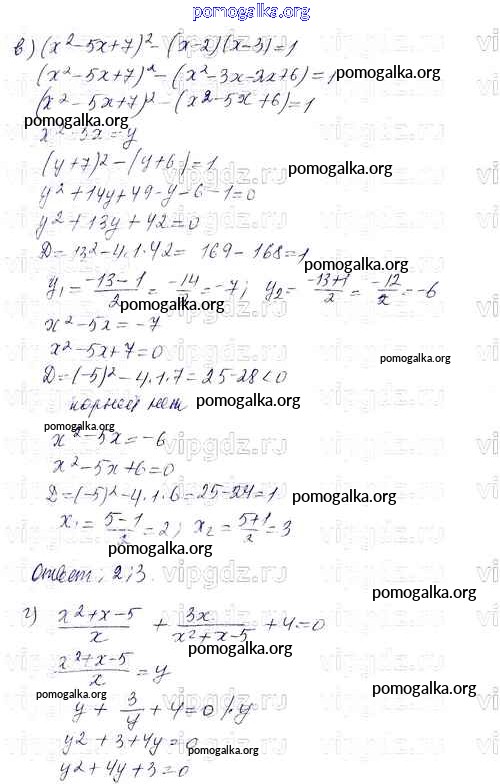 pomogalka.org
в) (x²-5x+7)²-(x-2)(x-3)=1
(x²-5x+7)²-(x²-3x-2x+6)=1 pomogalka.org
(x²-5x+7)²-(x²-5x+6)=1
pomogalka.org
x²-5x=y
(y+7)²-(y+6)=1 pomogalka.org
y²+14y+49-y-6-1=0
y²+13y+42=0
D=13²-4.1.42= 169-168=1
pomogalka.org
y₁= (-13-1)/2 = -14/2 =-7; y₂= (-13+1)/2 = -12/2 =-6
x²-5x=-7
x²-5x+7=0 pomogalka.org
D=(-5)²-4.1.7=25-28<0
корней нет pomogalka.org
pomogalka.org
x²-5x=-6
x²-5x+6=0
D=(-5)²-4.1.6=25-24=1 pomogalka.org
x₁= (5-1)/2 =2; x₂= (5+1)/2 =3
pomogalka.org
Ответ; 2;3.
pomogalka.org
г) (x²+x-5)/x + 3x/(x²+x-5) +4=0
pomogalka.org
(x²+x-5)/x =y
pomogalka.org pomogalka.org
y+ 3/y +4=0 /.y
y²+3+4y=0
pomogalka.org
y²+4y+3=0
vipgdz.ru